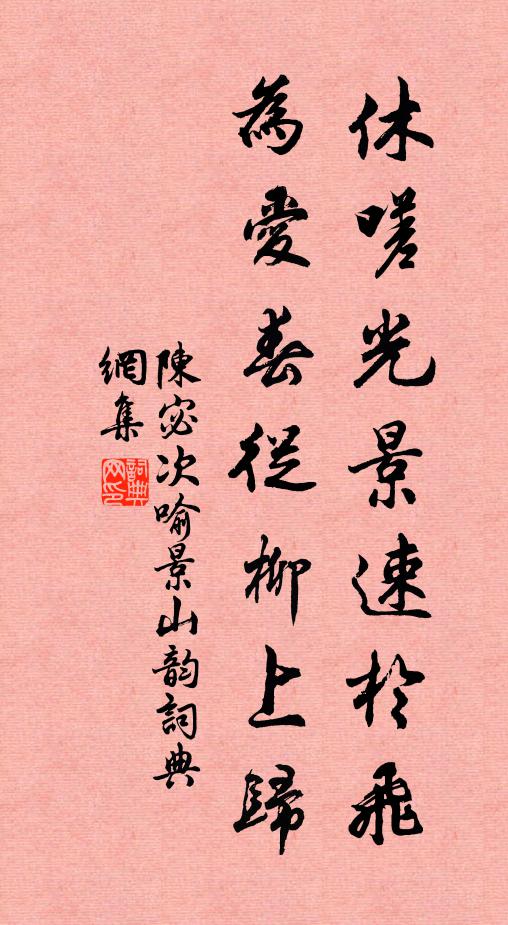 休嗟光景速於飛
為愛春從柳上歸
陳宓次喻景山韵詞典
網集
詞典网印